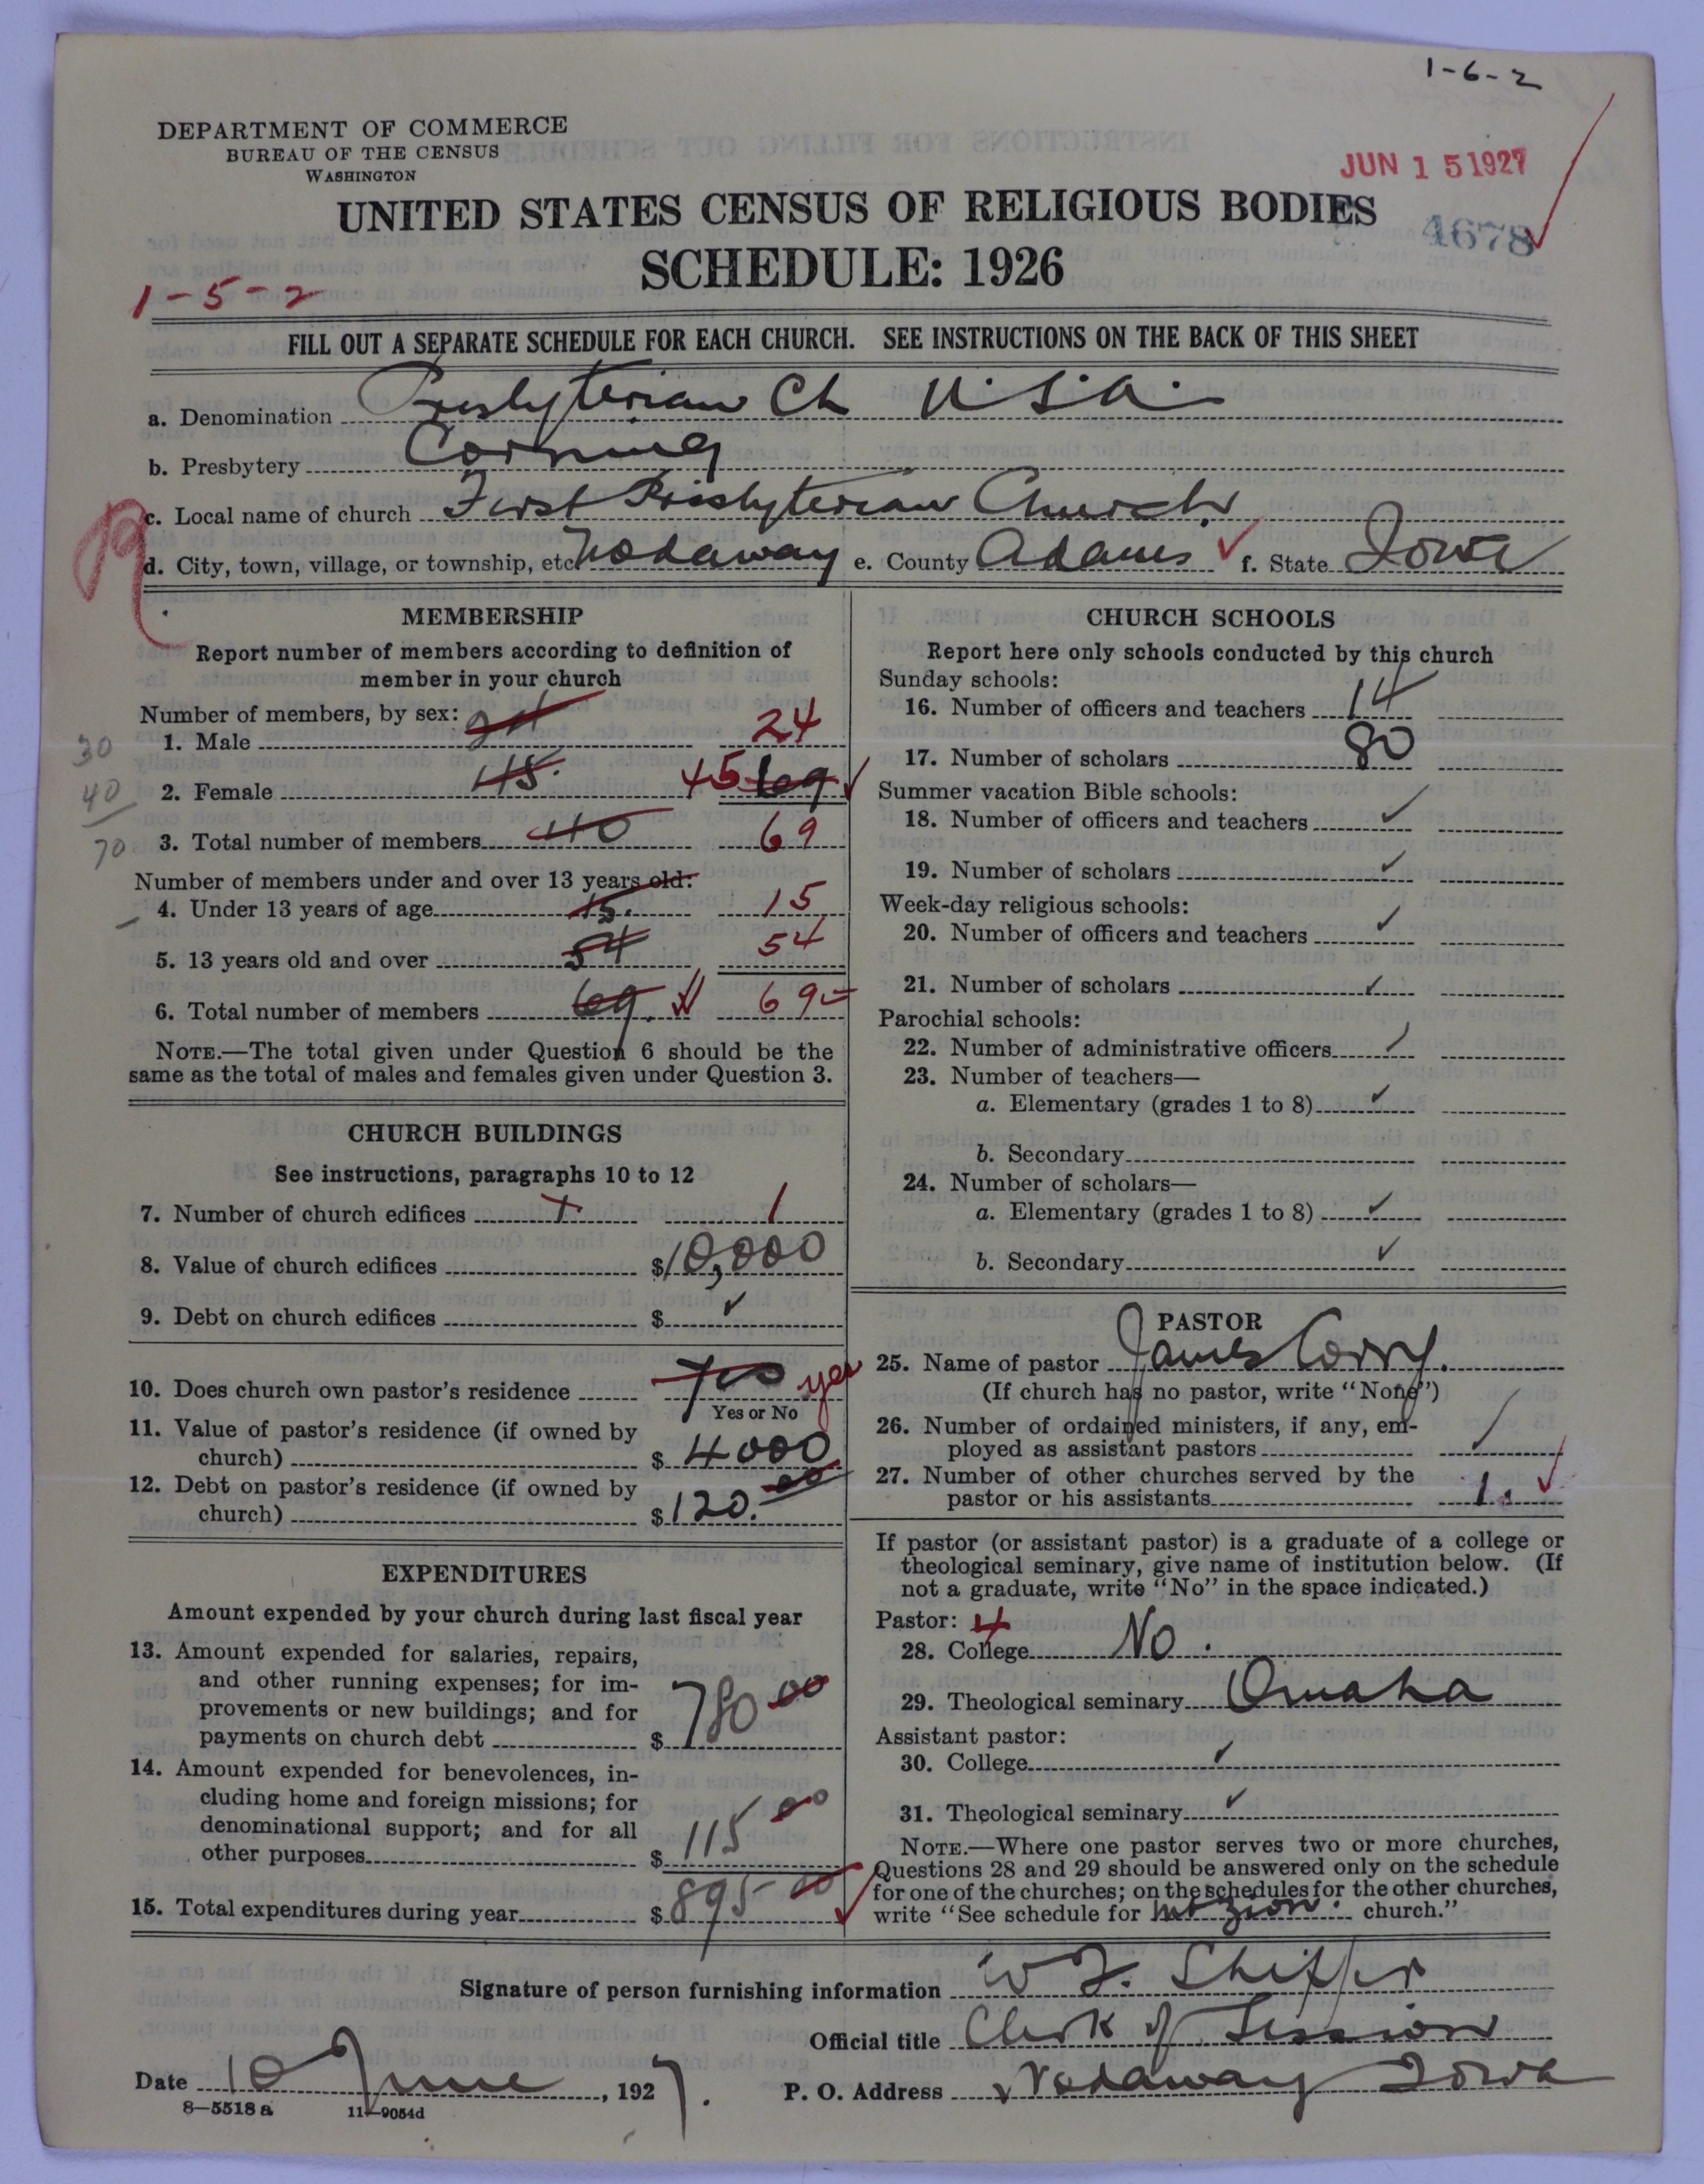 1-6-2
DEPARTMENT OF COMMERCE
BUREAU OF THE CENSUS
WASHINGTON
JUN 15 1927
UNITED STATES CENSUS OF RELIGIOUS BODIES
4678
SCHEDULE: 1926
1-5-2
FILL OUT A SEPARATE SCHEDULE FOR EACH CHURCH. SEE INSTRUCTIONS ON THE BACK OF THIS SHEET
a. Denomination Presbyterian Ch U.S.A.
b. Presbytery Corning
c. Local name of church First Presbyterian Church
d. City, town, village, or township, etc Nodaway e. County Adams f. State Iowa
MEMBERSHIP
Report number of members according to definition of
member in your church
Number of members, by sex:
1. Male 24 24
30
2. Female 45. 45 69
40
3. Total number of members 40 69
70
Number of members under and over 13 years old:
4. Under 13 years of age 15. 15
5. 13 years old and over 54 54
6. Total number of members 69. 69
NOTE.—The total given under Question 6 should be the
same as the total of males and females given under Question 3.
CHURCH BUILDINGS
See instructions, paragraphs 10 to 12
7. Number of church edifices 1 1
8. Value of church edifices $10,000
9. Debt on church edifices $
10. Does church own pastor's residence Yes yes
Yes or No
11. Value of pastor's residence (if owned by
church) $ 4000
12. Debt on pastor's residence (if owned by
church) $120.00
EXPENDITURES
Amount expended by your church during last fiscal year
13. Amount expended for salaries, repairs,
and other running expenses; for im-
provements or new buildings; and for
payments on church debt $ 780 00
14. Amount expended for benevolences, in-
cluding home and foreign missions; for
denominational support; and for all
other purposes $ 115 00
15. Total expenditures during year $ 895 00
CHURCH SCHOOLS
Report here only schools conducted by this church
Sunday schools:
16. Number of officers and teachers 14
17. Number of scholars 80
Summer vacation Bible schools:
18. Number of officers and teachers
19. Number of scholars
Week-day religious schools:
20. Number of officers and teachers
21. Number of scholars
Parochial schools:
22. Number of administrative officers
23. Number of teachers—
a. Elementary (grades 1 to 8)
b. Secondary
24. Number of scholars—
a. Elementary (grades 1 to 8)
b. Secondary
PASTOR
25. Name of pastor James Corry.
(If church has no pastor, write "None")
26. Number of ordained ministers, if any, em-
ployed as assistant pastors
27. Number of other churches served by the
pastor or his assistants 1.
If pastor (or assistant pastor) is a graduate of a college or
theological seminary, give name of institution below. (If
not a graduate, write "No" in the space indicated.)
Pastor: 4
28. College No.
29. Theological seminary Omaha
Assistant pastor:
30. College
31. Theological seminary
NOTE.—Where one pastor serves two or more churches,
Questions 28 and 29 should be answered only on the schedule
for one of the churches; on the schedules for the other churches,
write "See schedule for Mt Zion. church."
Signature of person furnishing information W F. Shiffer
Official title Clerk of Session
Date 10 June, 1927.
P. O. Address Nodaway Iowa
8—5518 a 11—9054d